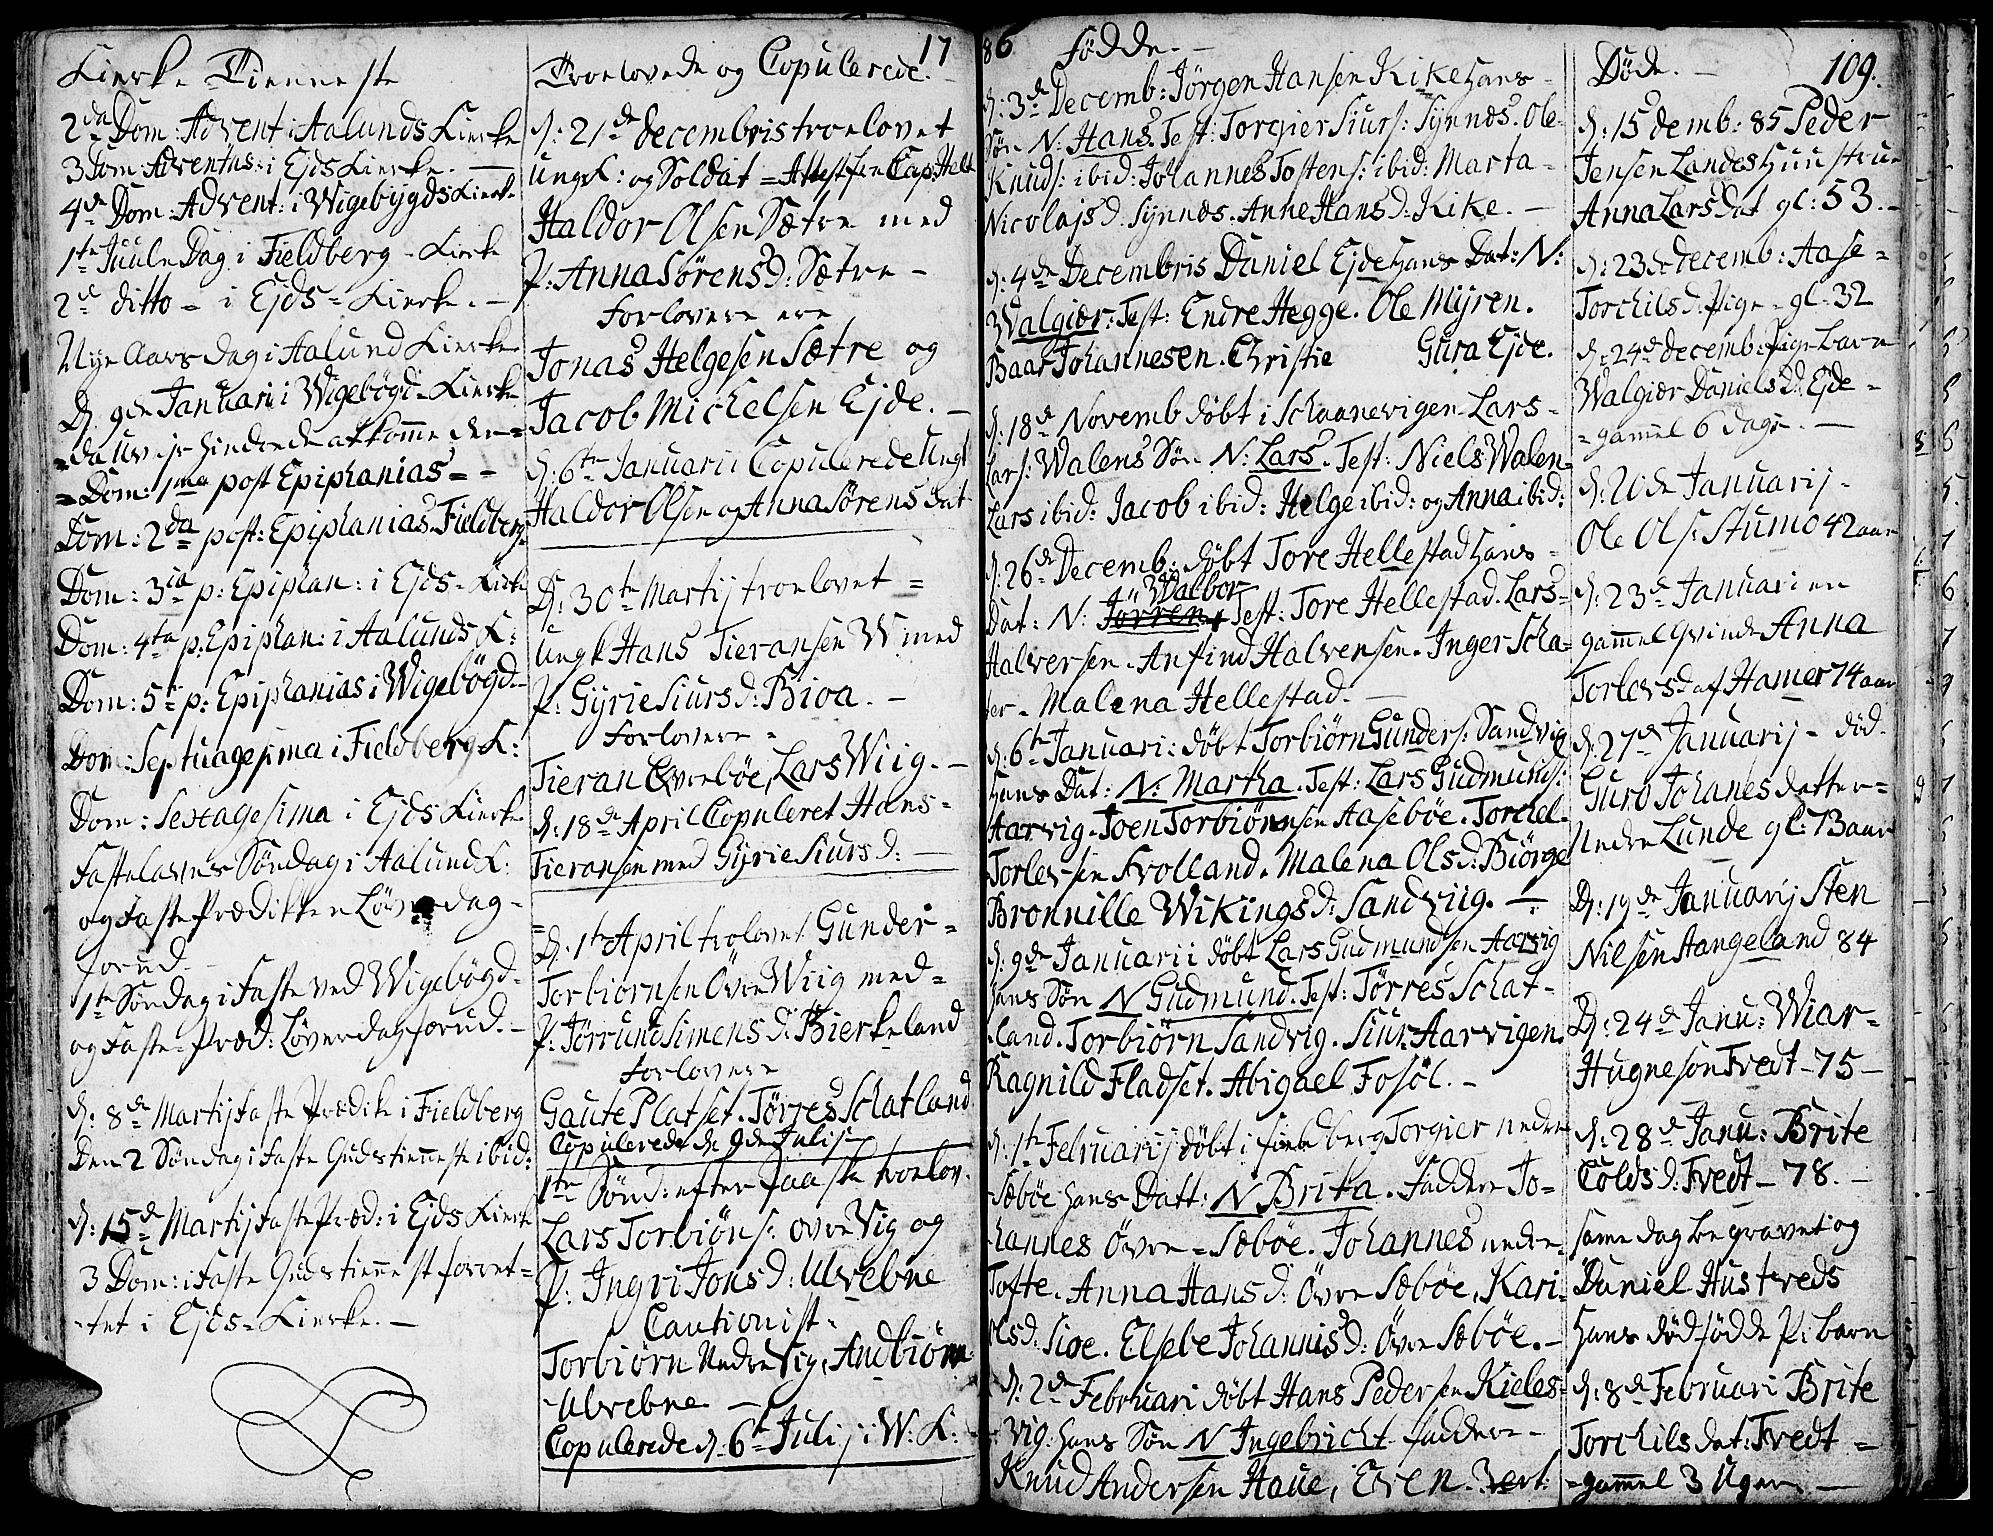 Kierke Tienneste
2da Dom: Advent i Aalunds Kierke
3 Dom: Adventus: i Ejds Kierke. —
4de Dom: Advent: i Wigebygds Kierke
1te Juule Dag i Fieldberg - Kierke
2de ditto - i Ejds - Kierke. —
Nye Aars dag i Aalund Kierke
D. 9de Januarii i Wigebøgd - Kierke
= da Uvejr hindrede at komme der =
= Dom: 1ma post Epiphanias = -
Dom: 2da post: Epiphanias Fieldberg
Dom: 3tia p: Epiphan: i Ejds - Kirke
Dom: 4ta p: Epiphan: i Aalunds K:
Dom: 5te p: Epiphanias i Wigebøgd -
Dom: Septuagesima i Fieldberg K:
Dom: Sexagesima i Ejds Kierke
Fastelavns Søndag i Aalund K:
og Faste Prædikken Løverdag -
forud. -
1te Søndag i Faste ved Wigebøgd -
og Faste - Præd: Løverdag forud. -
d: 8de Martij Faste Prædike i Fieldberg
Den 2 Søndag i Faste Gudstienneste ibid:
d: 15de Martij Faste Præd: i Ejds Kierke
3 Dom: i Faste Gudstiennest forret =
- tet i Ejds - Kierke. —
Troelovede og Copulerede. 17
d: 21de decembris troelovet
Ungk: og Soldat = Attest fra Cap: Helt
Haldor Olsen Sætre med
P: Anna Sørensd: Sætre -
Forlovere ere
Jonas Helgesen Sætre og
Jacob Michelsen Ejde. —
d: 6te Januarii Copulerede Ungk
Haldor Olsen og Anna Sørens Dat
D: 30te Martij troelovet =
Ungk Hans Tieransen W med
P: Gyrie Siursd: Bioa. -
Forlovere -
Tieran Øvrebøe, Lars Wiig. —
d: 18de April Copuleret Hans -
Tieransen med Gyrie Siursd: —
= D: 1te April trolovet Gunder =
Torbiornsen Øvre Wiig med =
P: Jørrund Simensd: Bierkeland
Forlovere
Gaute Platset. Tørres Schatland
Copulerede de 9de Julij
1te Sønd: efter Paaske troelov.
Lars Torbiøns: øvre Vig og
P: Ingri Jonsd: Ulvebne
Cautionist -
Torbiørn Nedre Vig, Andbiørn
- Ulvebne —
Copulerede d: 6te Julij i W: K:
86 Fødde. —
d: 3de Decemb: Jörgen Hansen Kike Hans
Søn N: Hans. Test: Torgier Siurs: Synnes. Ole
Knuds: ibid: Johannes Tostens: ibid: Marta -
Nicolajsd: Synnes. Anne Hansd: Kike. —
d: 4de Decembris Daniel Ejde Hans Dat: N:
Walgiær: Test: Endre Hegge. Ole Mijren.
Baar Johannesen. Christie Gura Ejde.
d: 18de Novemb døbt i Schaanevigen Lars -
Lars: Walens Søn N: Lars. Test: Niels Walen
Lars ibid: Jacob ibid: Helge ibid: og Anna ibid:
d: 26de Decemb: døbt Tore Hellestad Hans -
Walbor
Dat: N: Jørren. Test: Tore Hellestad. Lars -
Halversen. Anfind Halvensen. Inger Scha-
ter. Malena Hellestad. —
d: 6te Januari: døbt Torbiörn Gunders: Sandvig
Hans Dat: N: Martha. Test: Lars Gudmunds:
Aarvig. Joen Torbiörnsen Aasebøe. Torchel
Torlevsen Frolland. Malena Olsd: Biörge
Bronnille Wikingsd: Sandviig. —
d: 9de Januarii døbt Lars Gudmundsen Aarvig
Hans Søn N Gudmund. Test: Tørres Schat-
land. Torbiörn Sandvig. Siur Aarvigen.
Ragnild Fladset. Abigael Fosöl. —
d: 1te Februarij döbt i fieldberg Torgier nedre
Sæbøe Hans Datt: N Brita. Faddere Jo =
hannes Øvre = Sæbøe. Johannes nedre -
Tofte. Anna Hansd: Øvre Sæbøe, Kari -
Olsd: Sioe. Elsebe Johannisd: Øvre Sæbøe. —
d: 2de Februari døbt Hans Pedersen Kieles-
vig: Hans Søn N Ingebricht. Faddere -
Knud Andersen Haue, Even Bert:
Døde. — 109.
d: 15 demb: 85 Peder
Jensen Landes Huustrue
Anna Lars Dat gl: 53. -
d: 23de decemb: Aase =
Torchilsd: Pige - gl: 32
d: 24de decemb: Pige Barn
Walgiær Danielsd: Ejde -
= gammel 6 dage. —
d: 20de Januarij -
Ole Ols: Stumo 42 aar
d: 23de Januari en
gammel Qvinde Anna
Torlevsd af Hamer 74 aar
d: 27de Januarij - død.
Guro Johanes datter =
Nedre Lunde gl: 73 aar
D: 19de Januarij Sten
Nilsen Stangeland 84
D: 24de Janu: Wiar -
Hugneson Tvedt - 75 -
d: 28de Janu: Brite
Coldsd: Tvedt - 78. -
same dag begravet og
Daniel Hustveds
Hans dödfødde P: barn
d: 8de Februari Brite
Torchils dat: Tvedt =
= gammel 3 Uger. —